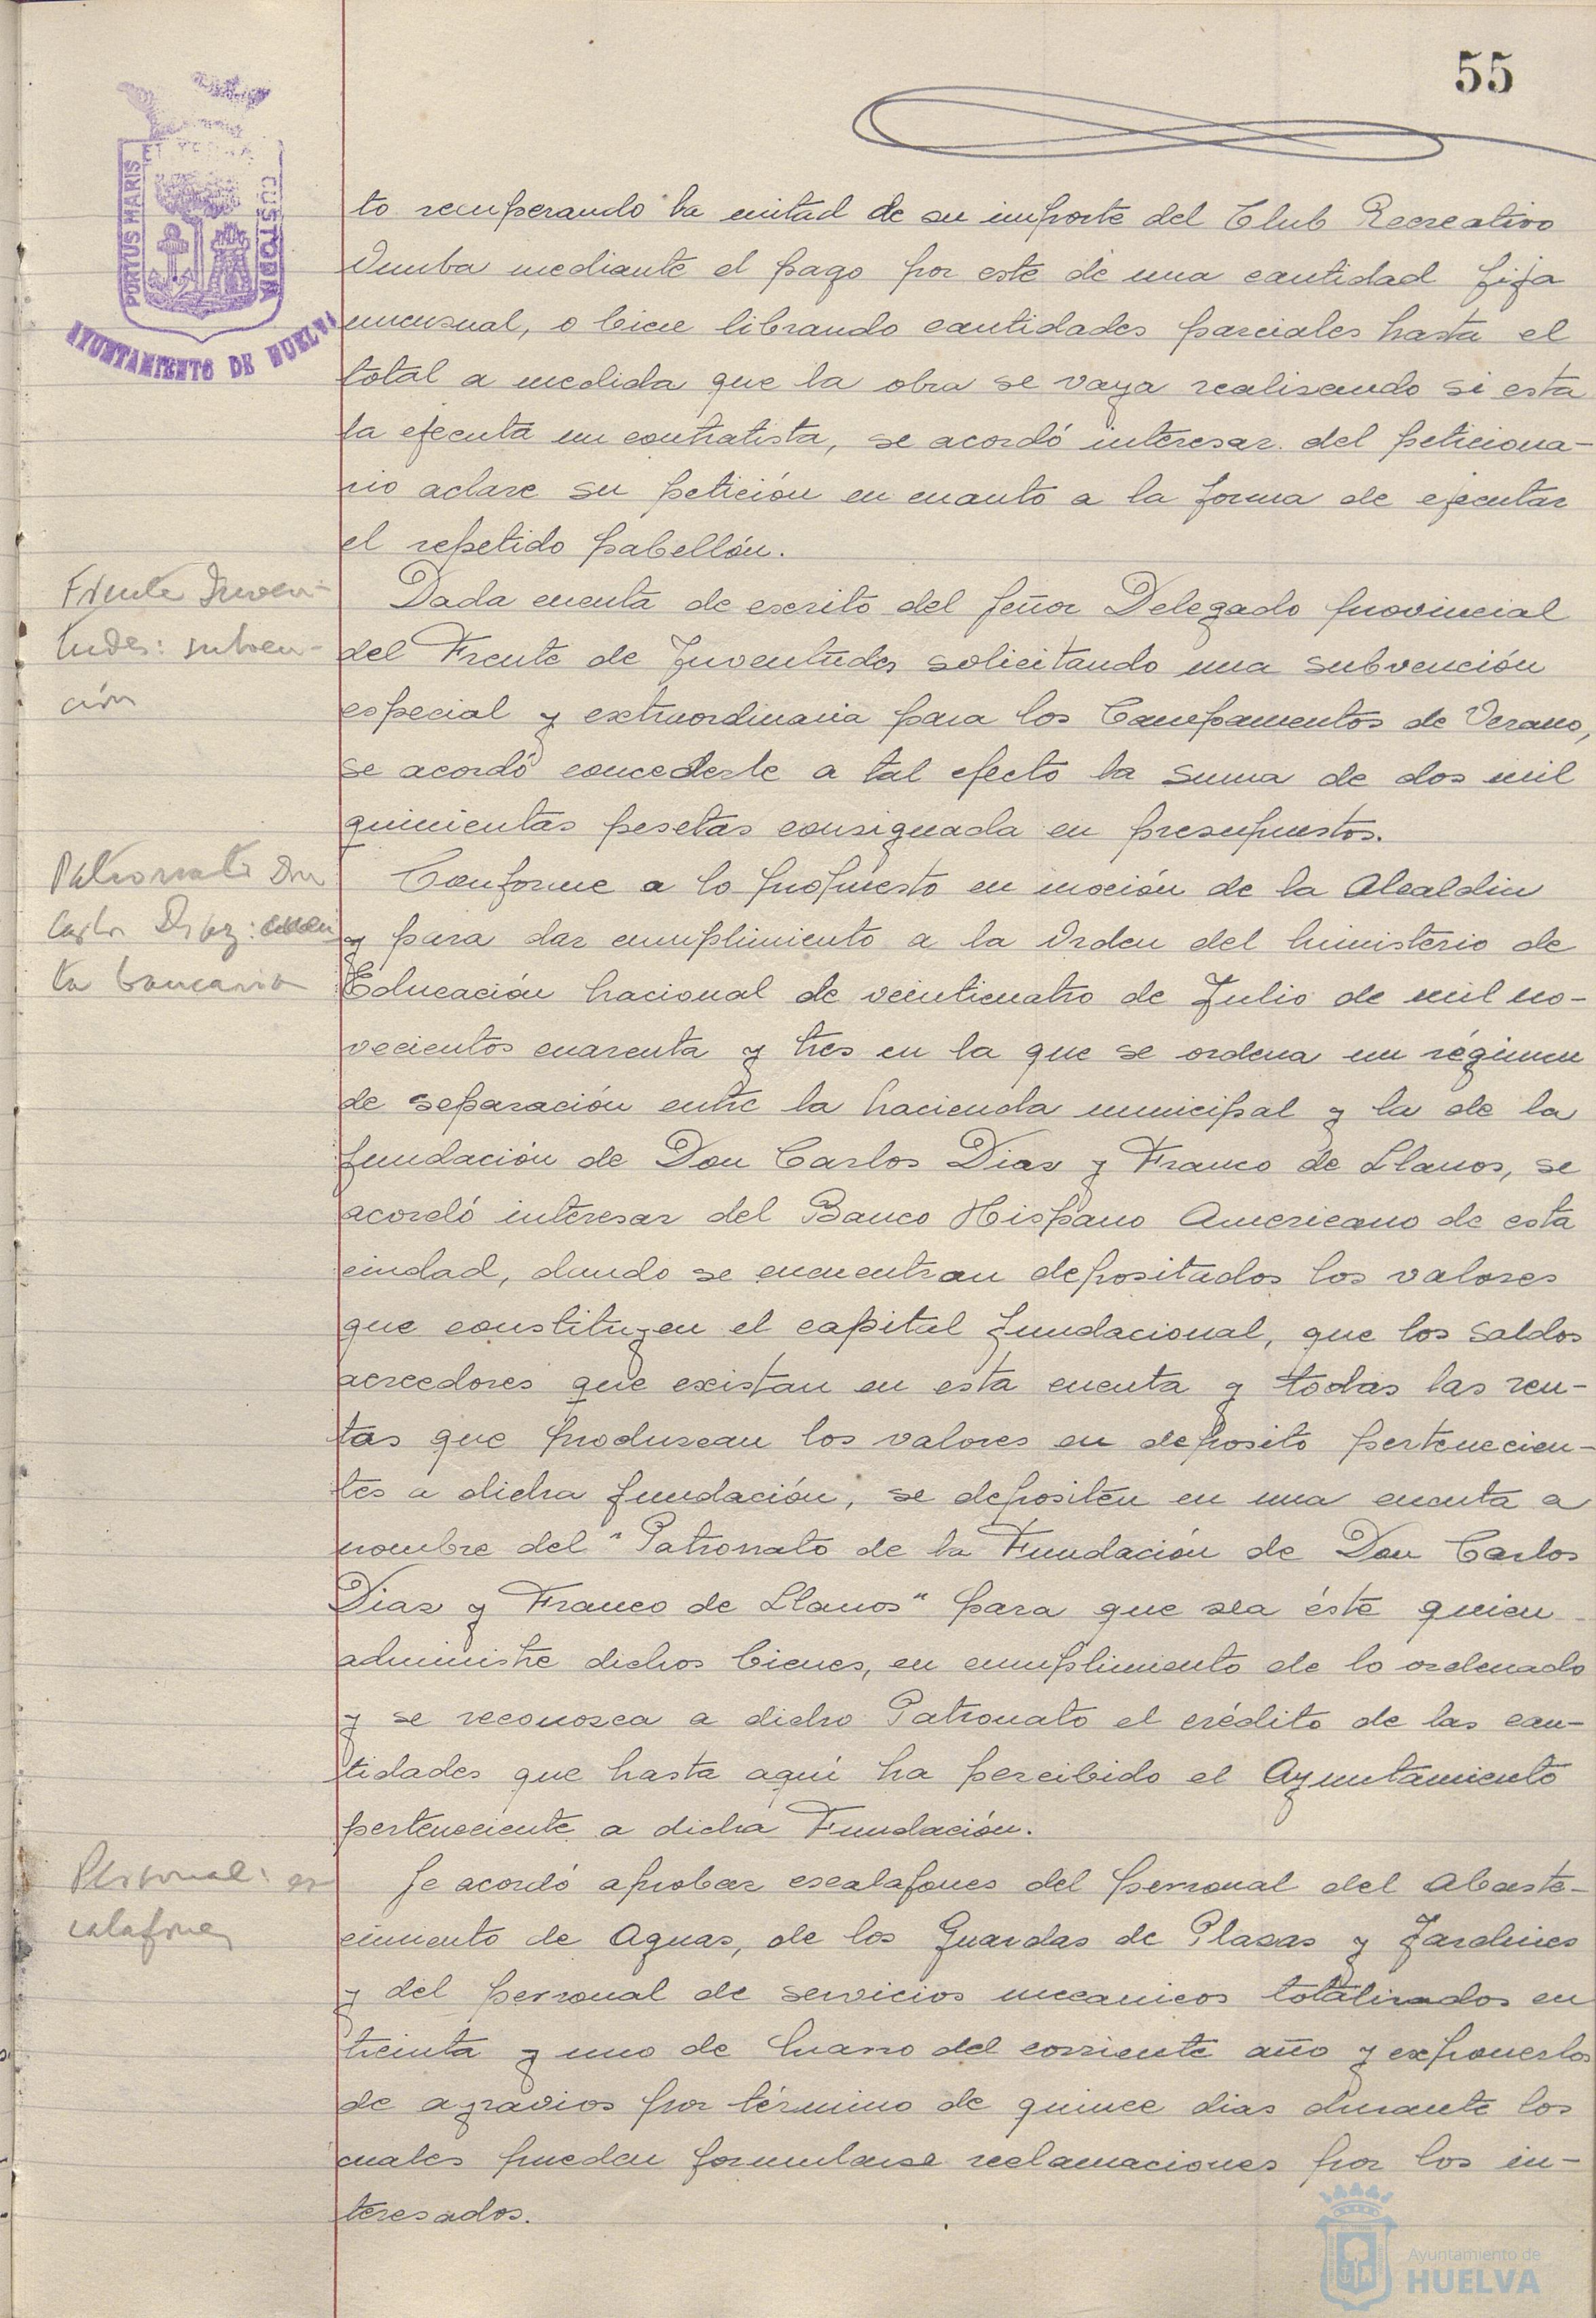 55
PORTUS MARIS
ET TERRA
CUSTODIA
AYUNTAMIENTO DE HUELVA
to recuperando la mitad de su importe del Club Recreativo
Onuba mediante el pago por este de una cantidad fija
mensual, o bien librando cantidades parciales hasta el
total a medida que la obra se vaya realizando si esta
la ejecuta un contratista, se acordó interesar del peticiona-
rio aclare su petición en cuanto a la forma de ejecutar
el repetido pabellón.
Frente Juven-
tudes: subven-
ción
Dada cuenta de escrito del Señor Delegado provincial
del Frente de Juventudes solicitando una subvención
especial y extraordinaria para los Campamentos de Verano,
se acordó concederle a tal efecto la suma de dos mil
quinientas pesetas consignada en presupuestos.
Patronato Don
Carlos Diaz: cuen
ta bancaria
Conforme a lo propuesto en moción de la Alcaldia
y para dar cumplimiento a la Orden del Ministerio de
Educación Nacional de veinticuatro de Julio de mil no-
vecientos cuarenta y tres en la que se ordena un régimen
de separación entre la hacienda municipal y la de la
fundación de Don Carlos Diaz y Franco de Llanos, se
acordó interesar del Banco Hispano Americano de esta
ciudad, dondo se encuentran depositados los valores
que constituyen el capital fundacional, que los saldos
acreedores que existan en esta cuenta y todas las ren-
tas que produzcan los valores en deposito pertenecien-
tes a dicha fundación, se depositen en una cuenta a
nombre del "Patronato de la Fundación de Don Carlos
Diaz y Franco de Llanos" para que sea éste quien
administre dichos bienes, en cumplimiento de lo ordenado
y se reconozca a dicho Patronato el crédito de las can-
tidades que hasta aquí ha percibido el Ayuntamiento
perteneciente a dicha Fundación.
Personal: es
calafones
Se acordó aprobar escalafones del personal del Abaste-
cimiento de Aguas, de los Guardas de Plazas y Jardines
y del personal de servicios mecanicos totalizados en
treinta y uno de Marzo del corriente año y exponerlos
de agravios por término de quince dias durante los
cuales pueden formularse reclamaciones por los in-
teresados.
Ayuntamiento de
HUELVA